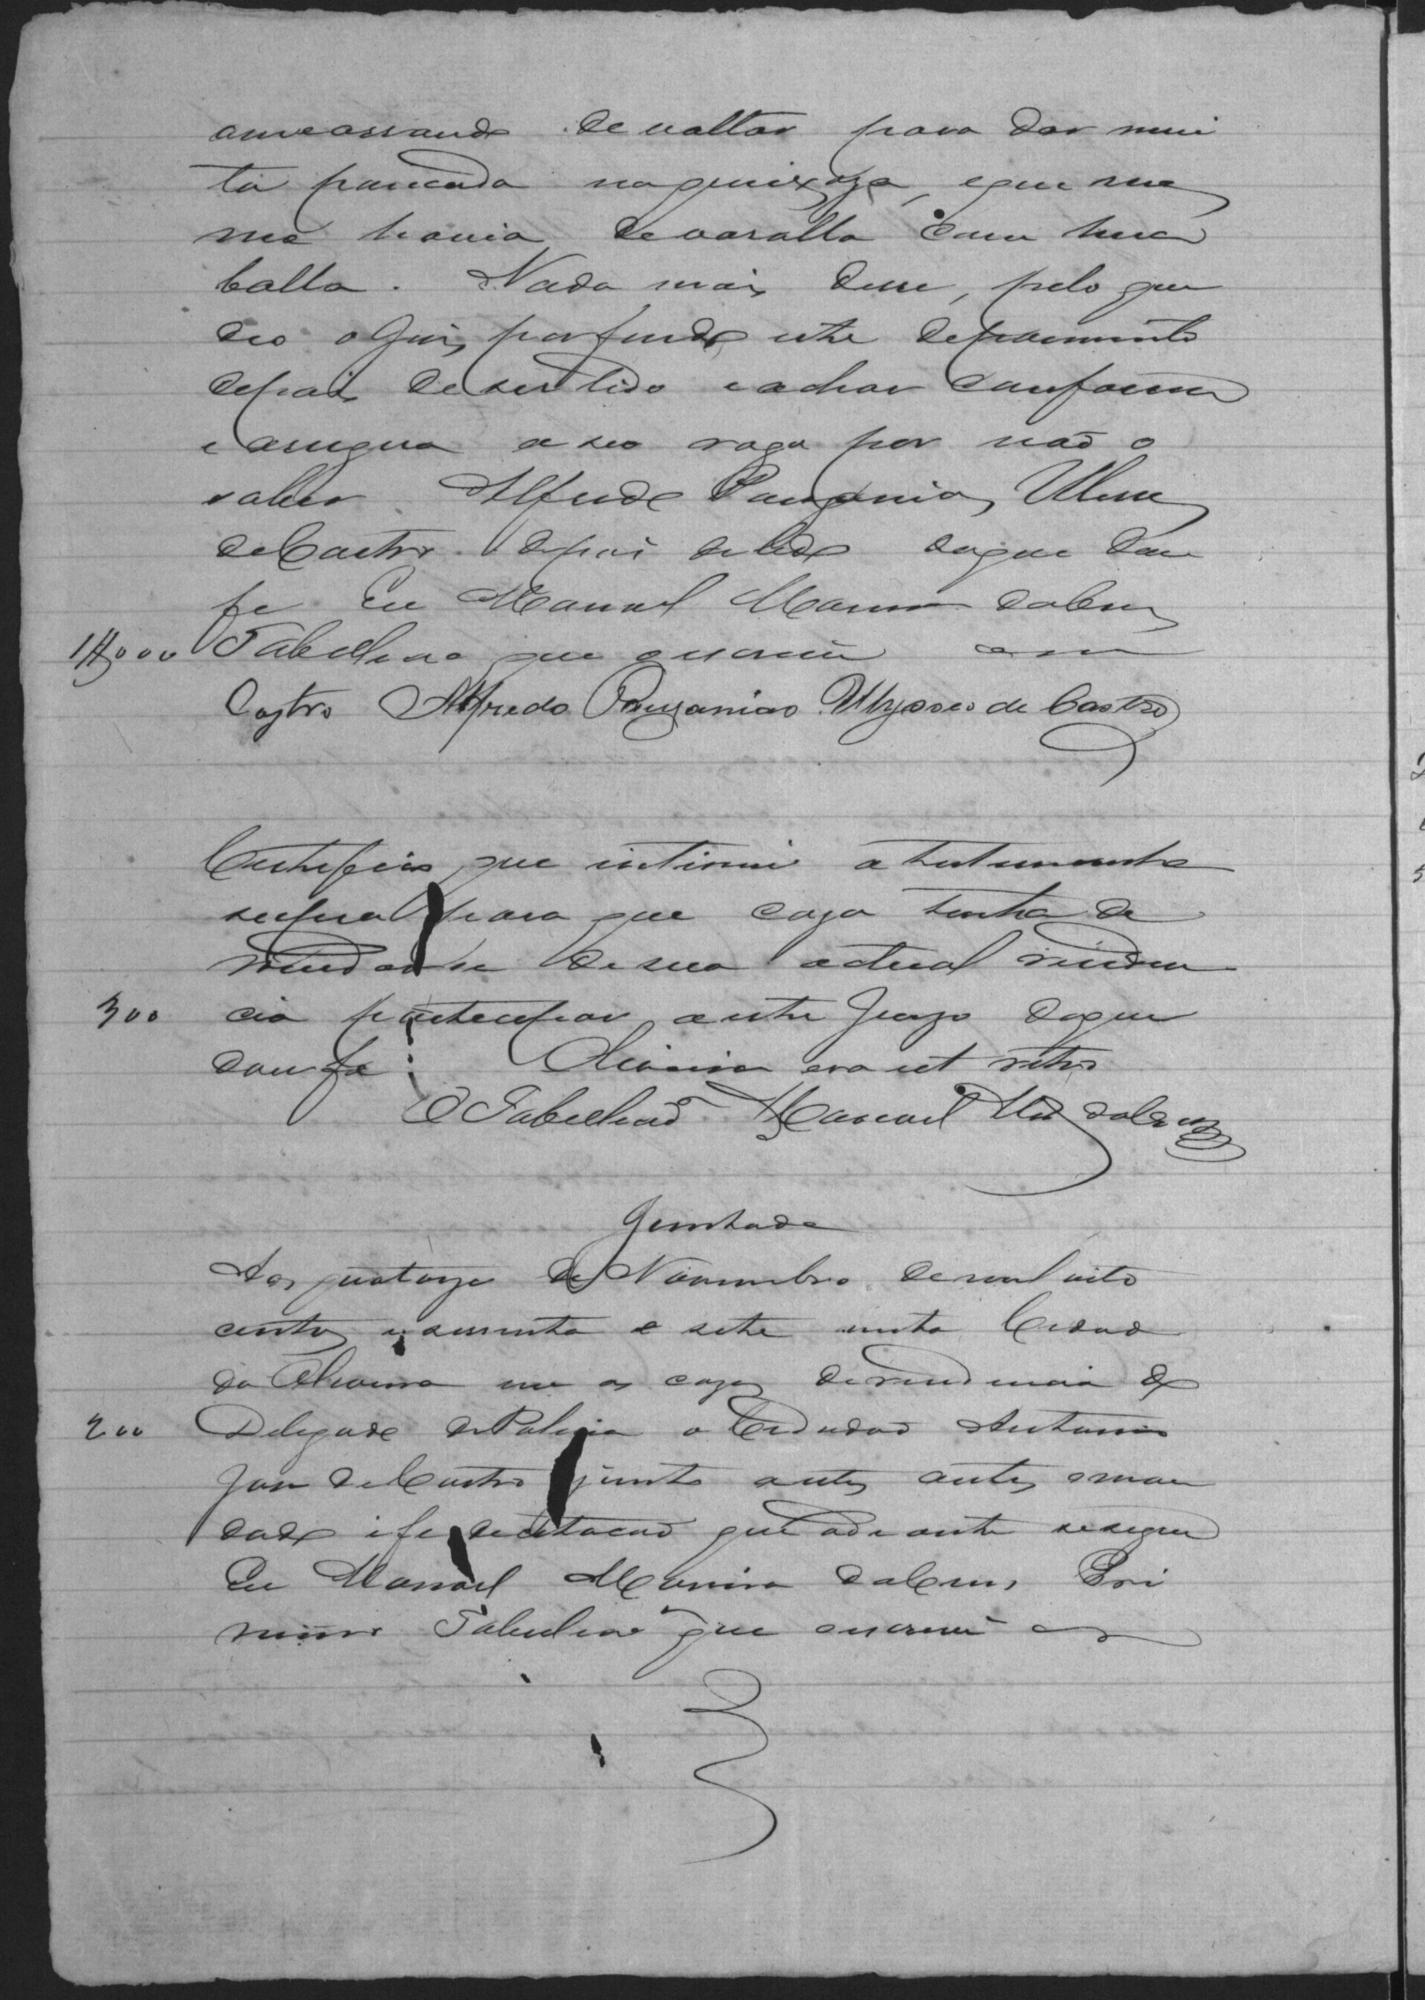 ameassando de voltar para dar mui
ta pancada na queixoza, e que
havia de varalla com huma
balla. Nada mais disse, pelo que
deo o Juiz por findo este depoimento
depois de ser lido e achar conforme
e assigna a seo rogo por não o
saber Alfredo Pauzanias Ulisses
de Castro depois de lido do que dou
fé Eu Manoel da Cruz
1$000 Tabellião que escrevi
Castro Alfredo Pauzanias Ulysses de Castro
Certifico que intimei a testemunha
supra para que caso tenha de
mudar-se de sua actual residen
300 cia participar a este Juizo do que
dou fé. Oliveira era ut retro
O Tabellião Manoel da Cruz
Juntada
Aos quatorze de Novembro de mil oito
centos e setenta e sete nesta Cidade
da Oliveira em as cazas de residencia do
200 Delegado de Policia o Cidadão Antonio
José de Castro junto a estes autos o man
dado e fé de citação que adiante se segue
Eu Manoel da Cruz Pri
meiro Tabellião que escrevi